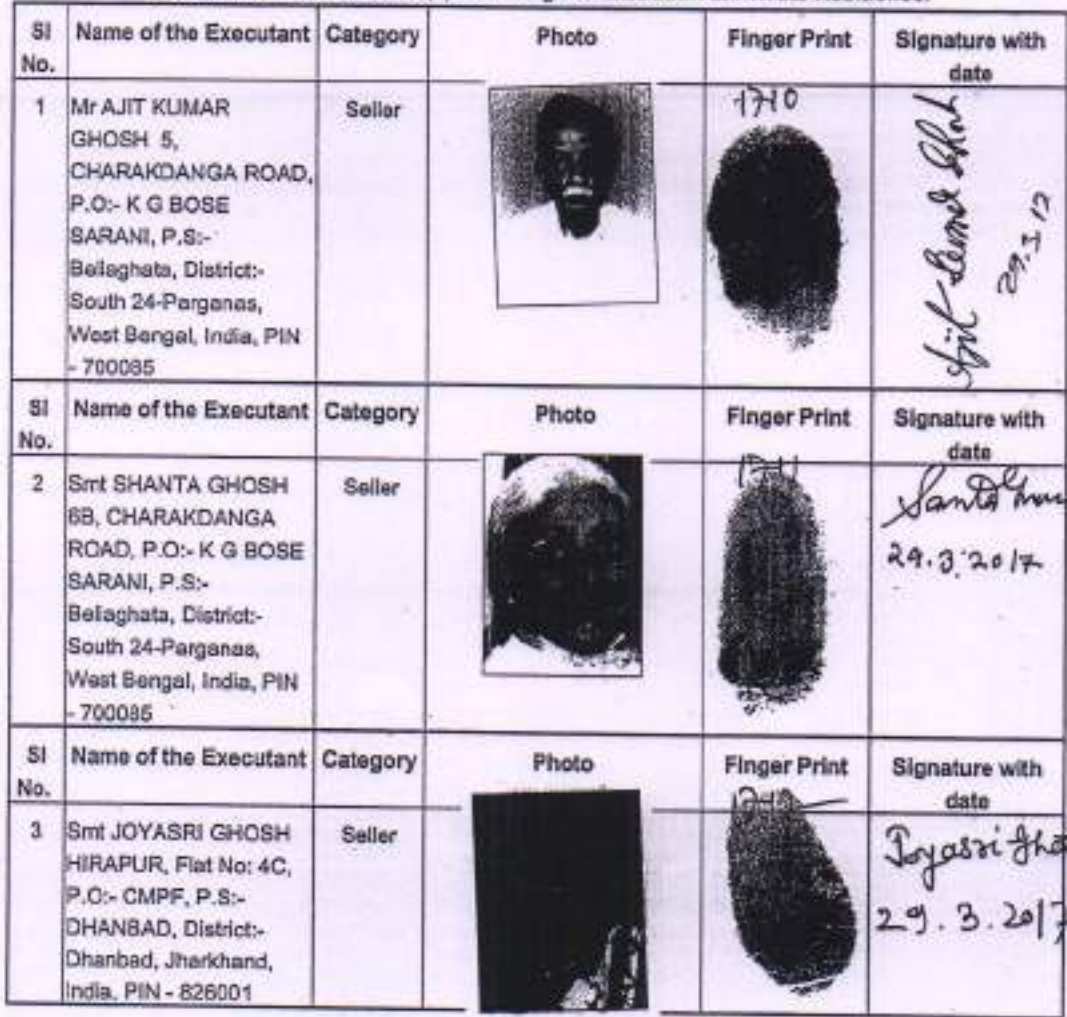 Sl No. Name of the Executant Category Photo Finger Print Signature with date
1 Mr AJIT KUMAR Seller 1710
GHOSH 5,
CHARAKDANGA ROAD,
P.O:- K G BOSE
SARANI, P.S:-
Beliaghata, District:-
South 24-Parganas,
West Bengal, India, PIN
- 700085
Ajit Kumar Ghosh
29.3.17
Sl No. Name of the Executant Category Photo Finger Print Signature with date
2 Smt SHANTA GHOSH Seller 1711
6B, CHARAKDANGA
ROAD, P.O:- K G BOSE
SARANI, P.S:-
Beliaghata, District:-
South 24-Parganas,
West Bengal, India, PIN
- 700085
29.3.2017
Sl No. Name of the Executant Category Photo Finger Print Signature with date
3 Smt JOYASRI GHOSH Seller
HIRAPUR, Flat No: 4C,
P.O:- CMPF, P.S:-
DHANBAD, District:-
Dhanbad, Jharkhand,
India, PIN - 826001
Joyasri Gho
29.3.2017